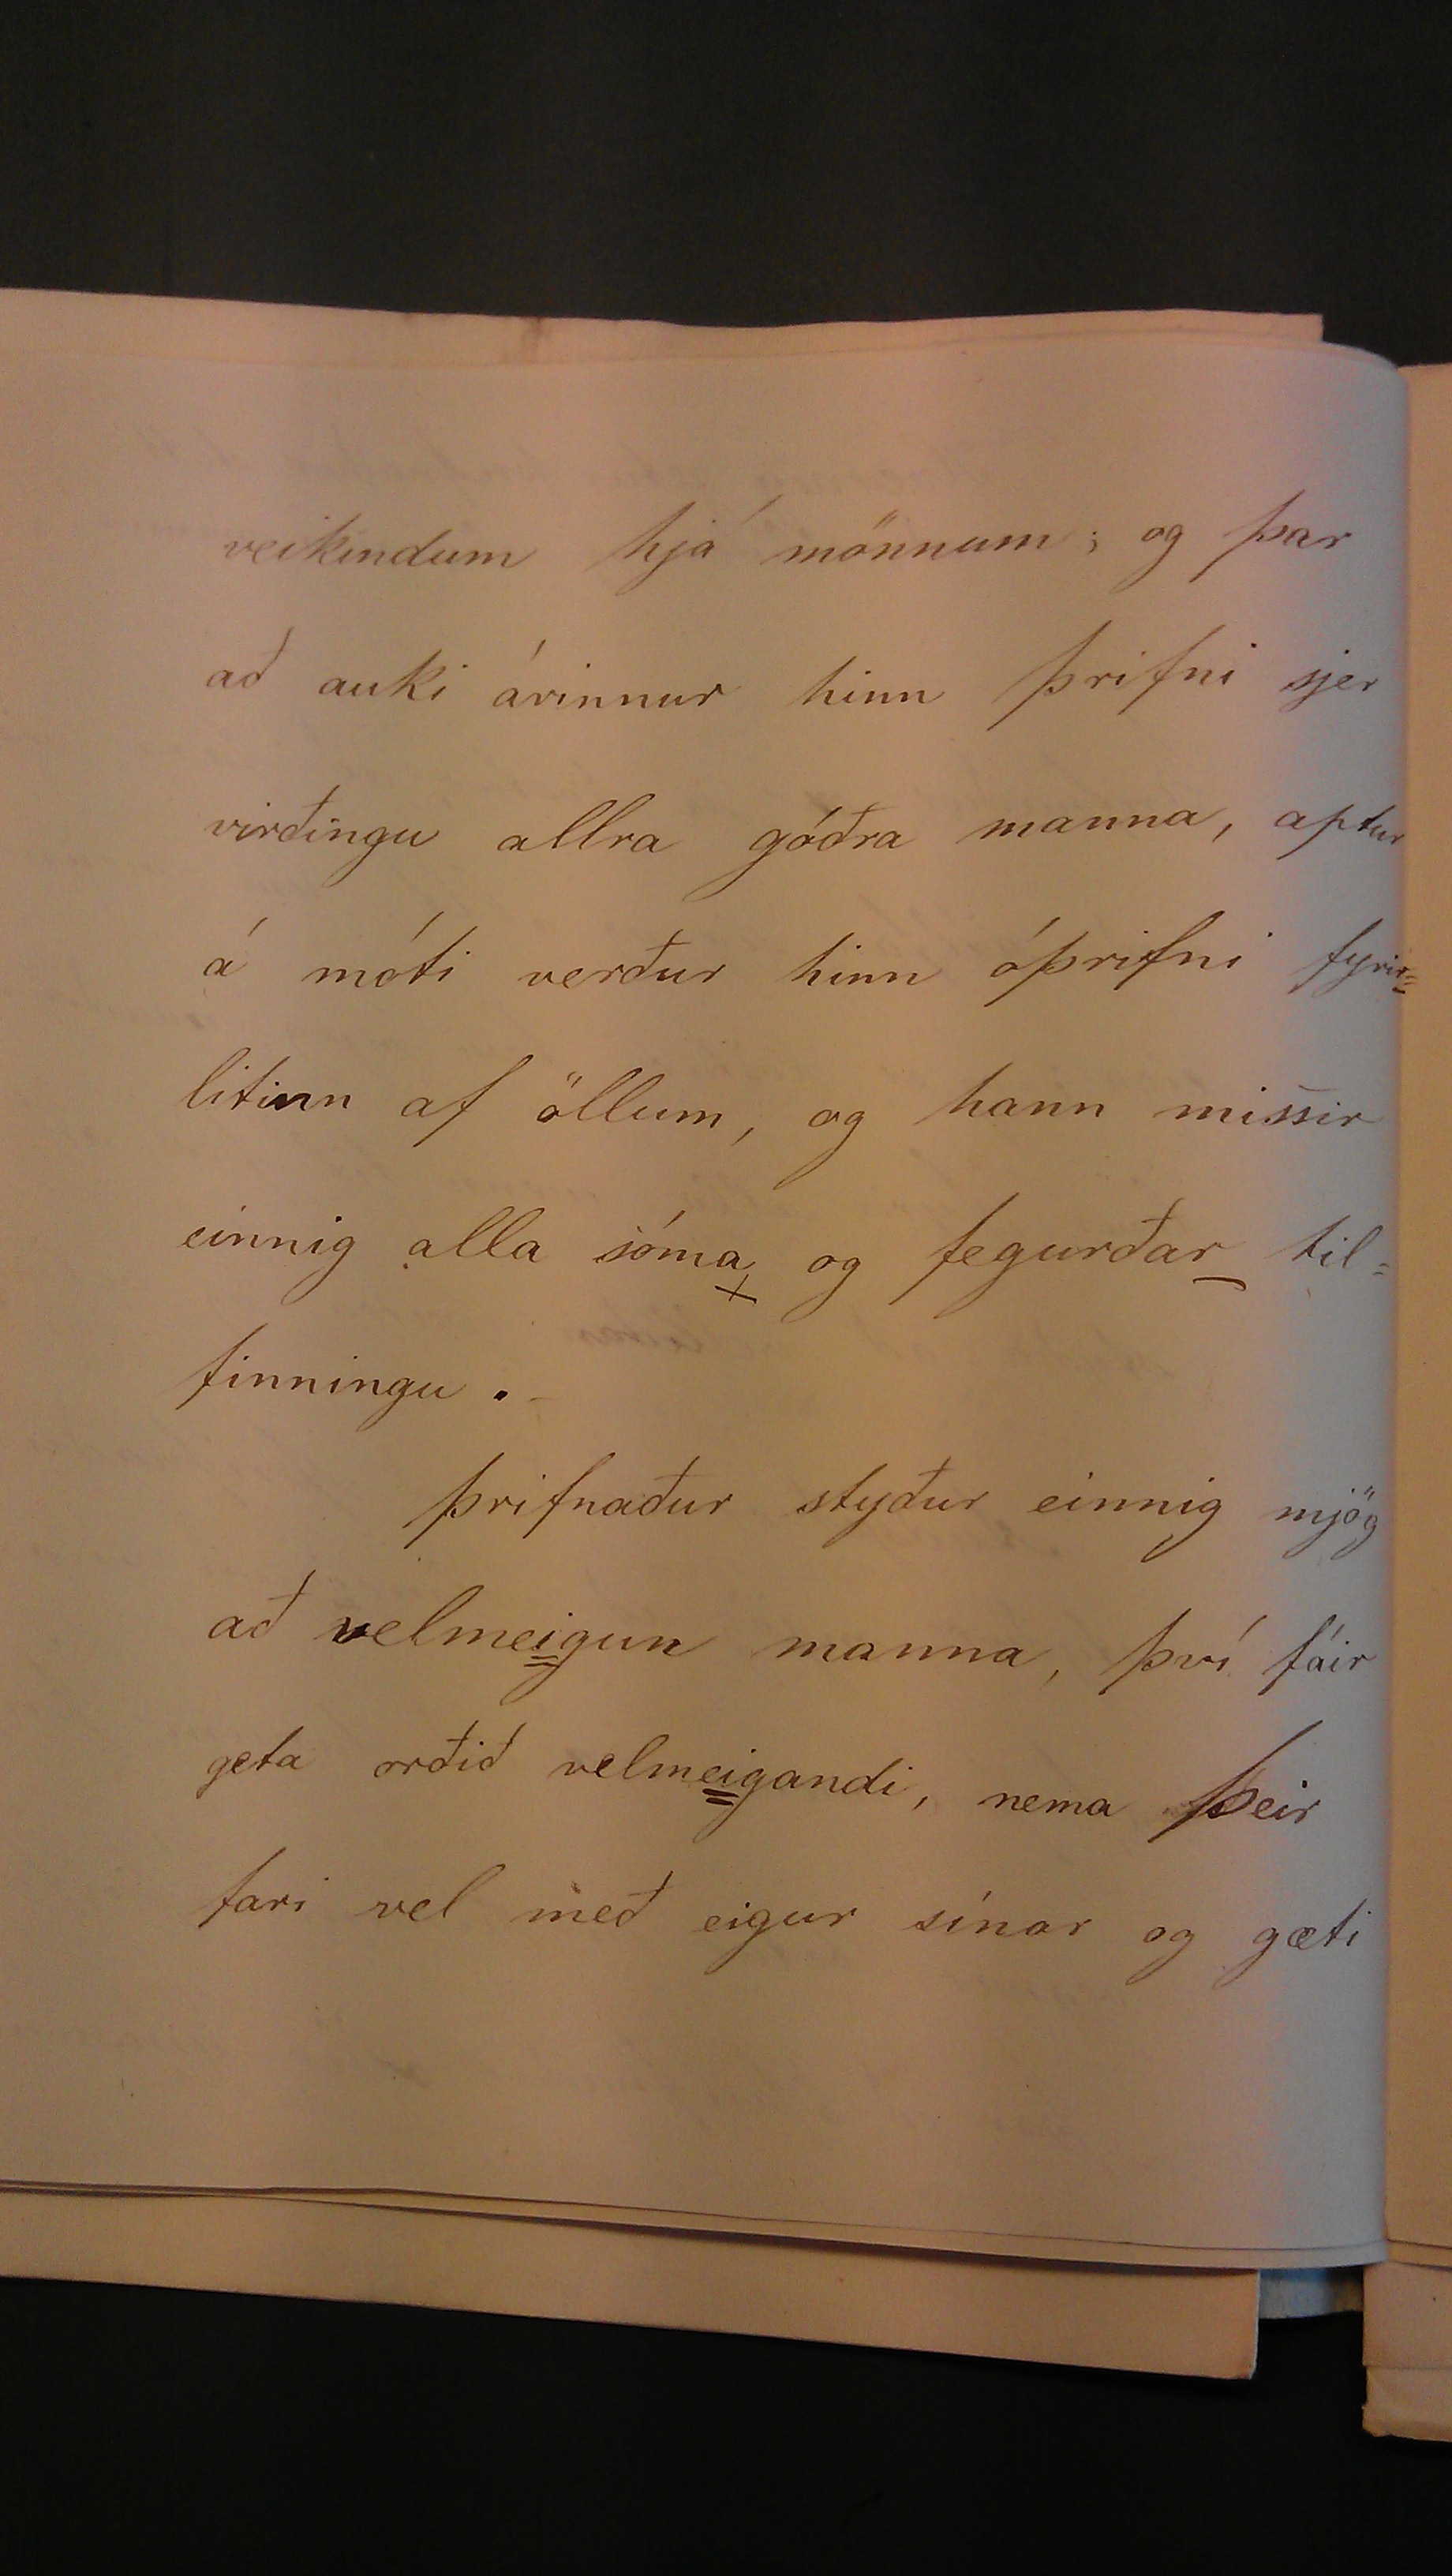 veikindum hjá mönnum; og þar
að auki ávinnur hinn þrifni sjer
virðingu allra góðra manna, aptur
á móti verður hinn óþrifni fyrir=
litinn af öllum, og hann missir
einnig alla sóma og fegurðar til=
finningu.
þrifnaður styður einnig mjög
að velmeigun manna, því fáir
geta orðið velmeigandi, nema þeir
fari vel með eigur sínar og gæti